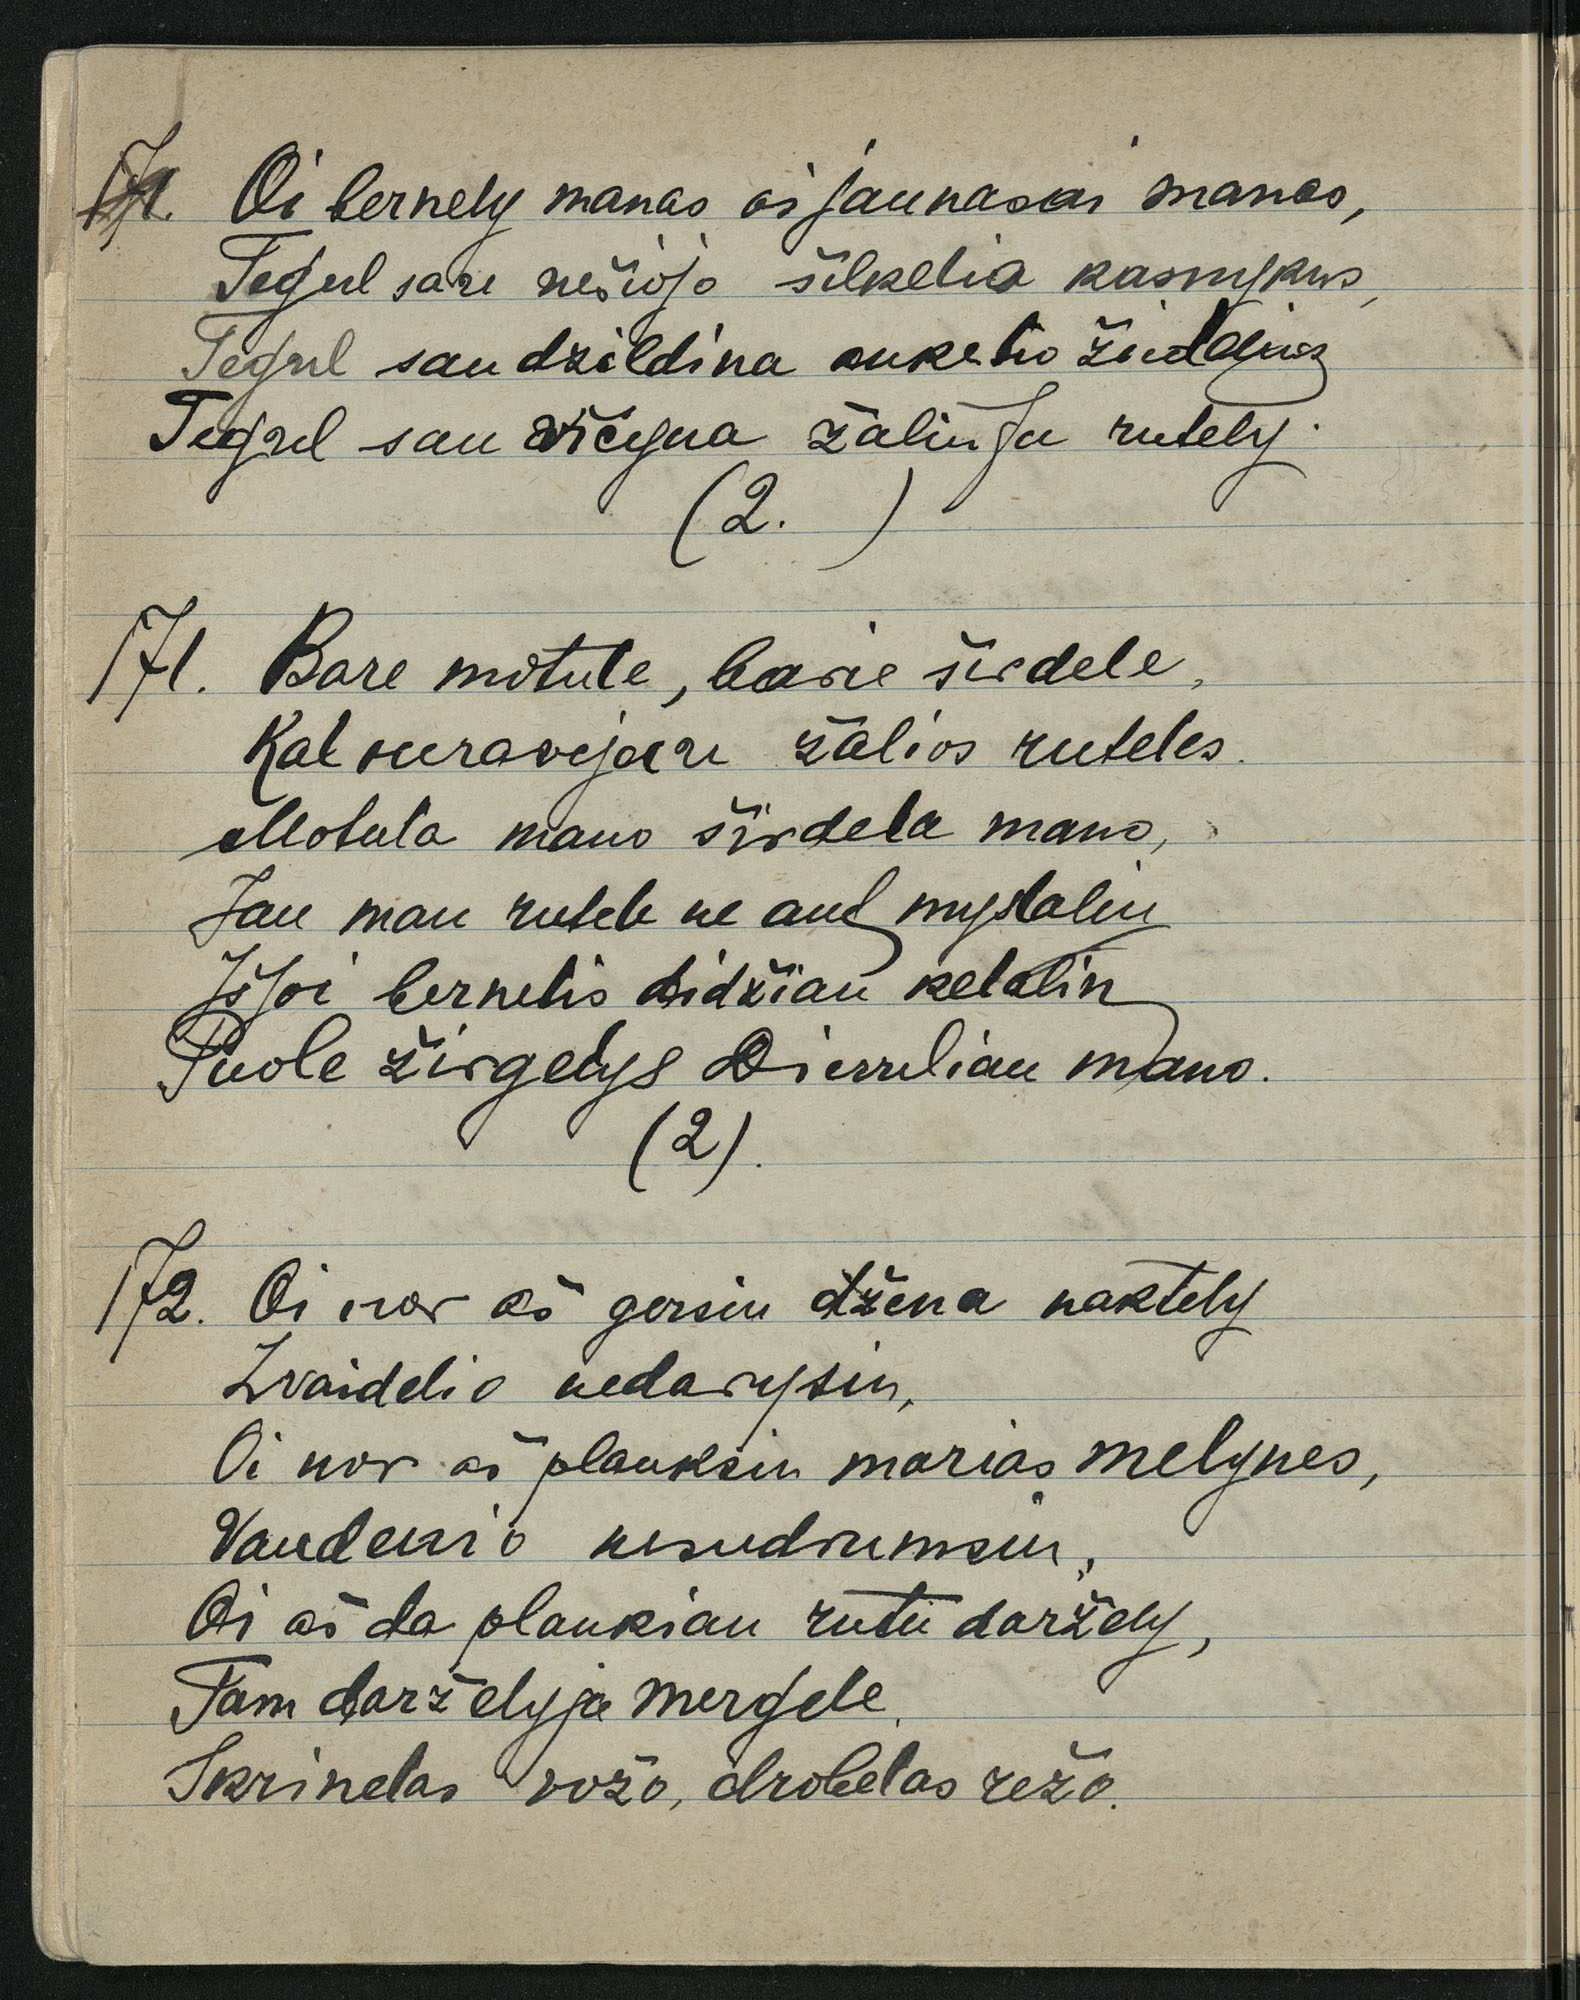 Oi bernely manas oi jaunasai manas,
Tegul sau nešioja šilkelia kasnykus,
Tegul sau dzildina aukselio žiedelius
Tegul sau vičyna žaliuju rutely.
(2. )
171. Bare motule, barie širdele,
Kat nuravejau žalios ruteles.
Motula mano širdela mano,
Jau man rutele ne ant myslaliu
Išjoi bernelis didžiau kelalin
Puole žirgelys Dievulian mano.
(2).
172. Oi nor aš gersiu džena naktely
Zvaidelio nedarysiu,
Oi nor aš plauksiu marias melynes,
Vandenio nesudrumsiu,
Oi aš da plaukiau rutu darželų,
Tam darželyja mergele.
Skrinelas vožo, drobelas režo.